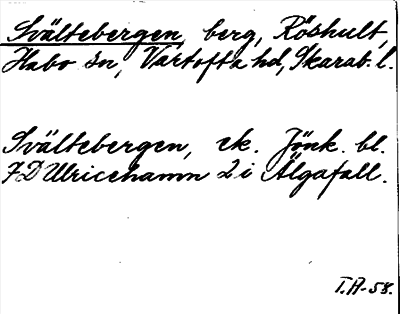 Svältebergen, berg, Röshult,
Habo sn, Vartofta hd, Skarab. l.
Svältebergen, ek. Jönk. bl.
7D Ulricehamn 2 i Älgafall.
T.A-58.